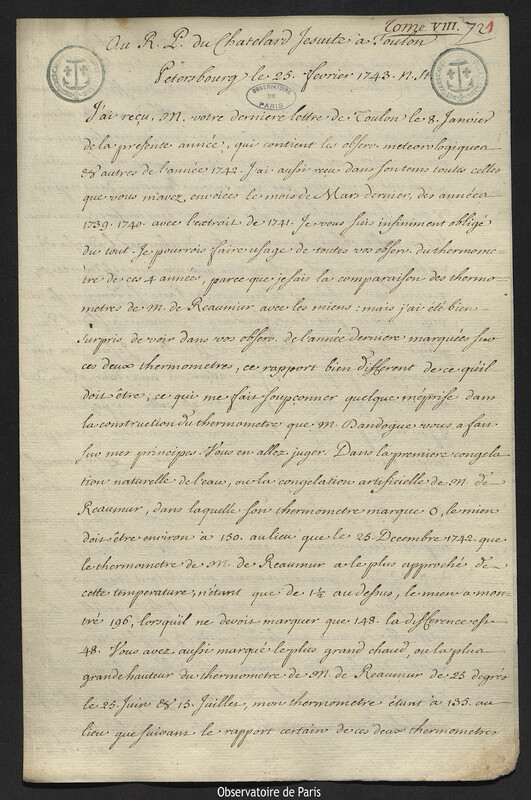 Tome VIII. 721
Au R. P. du Chatelard Jesuite à Toulon
Petersbourg le 25. fevrier 1743. N. St.
OBSERVATOIRE DE PARIS
J'ai reçu, M. votre derniere lettre de Toulon le 8. Janvier
de la presente année, qui contient les observ. meteorologiques
& autres de l'année 1742. J'ai aussi reçu dans son tems toutes celles
que vous m'avez envoiées le mois de Mars dernier, des années
1739. 1740. avec l'extrait de 1741. Je vous suis infiniment obligé
du tout. Je pourrois faire usage de toutes vos observ. du thermome-
tre de ces 4 année, parce que je sais la comparaison des thermo-
metres de M. de Reaumur avec les miens: mais j'ai été bien
surpris de voir dans vos observ. de l'année derniere marquées sur
ces deux thermometres, ce rapport bien different de ce qu'il
doit être; ce qui me fait soupçonner quelque méprise dans
la construction du thermometre que M. Dandogue vous a fait
sur mes principes. Vous en allez juger. Dans la premiere congela-
tion naturelle de l'eau, ou la congelation artificielle de M. de
Reaumur, dans laquelle son thermometre marque 0, le mien
doit être environ à 150. au lieu que le 25. Decembre 1742. que
le thermometre de M. de Reaumur a le plus approché de
cette temperature, n'étant que de 1⅓ au dessus, le mien a mon-
tré 196, lorsqu'il ne devoit marquer que 148. la difference est
48. Vous avez aussi marqué le plus grand chaud, ou la plus
grande hauteur du thermometre de M. de Reaumur de 23 degrés
le 25. Juin & 15. Juillet, mon thermometre étant à 135. au
lieu que suivant le rapport certain de ces deux thermometres
Observatoire de Paris